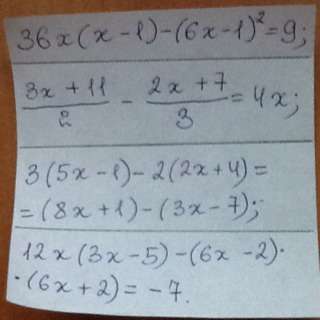 36x(x-1)-(6x-1)²=9;
(3x+11)/2 - (2x+7)/3 = 4x;
3(5x-1)-2(2x+4)=
=(8x+1)-(3x-7);
12x(3x-5)-(6x-2)·
·(6x+2)=-7.